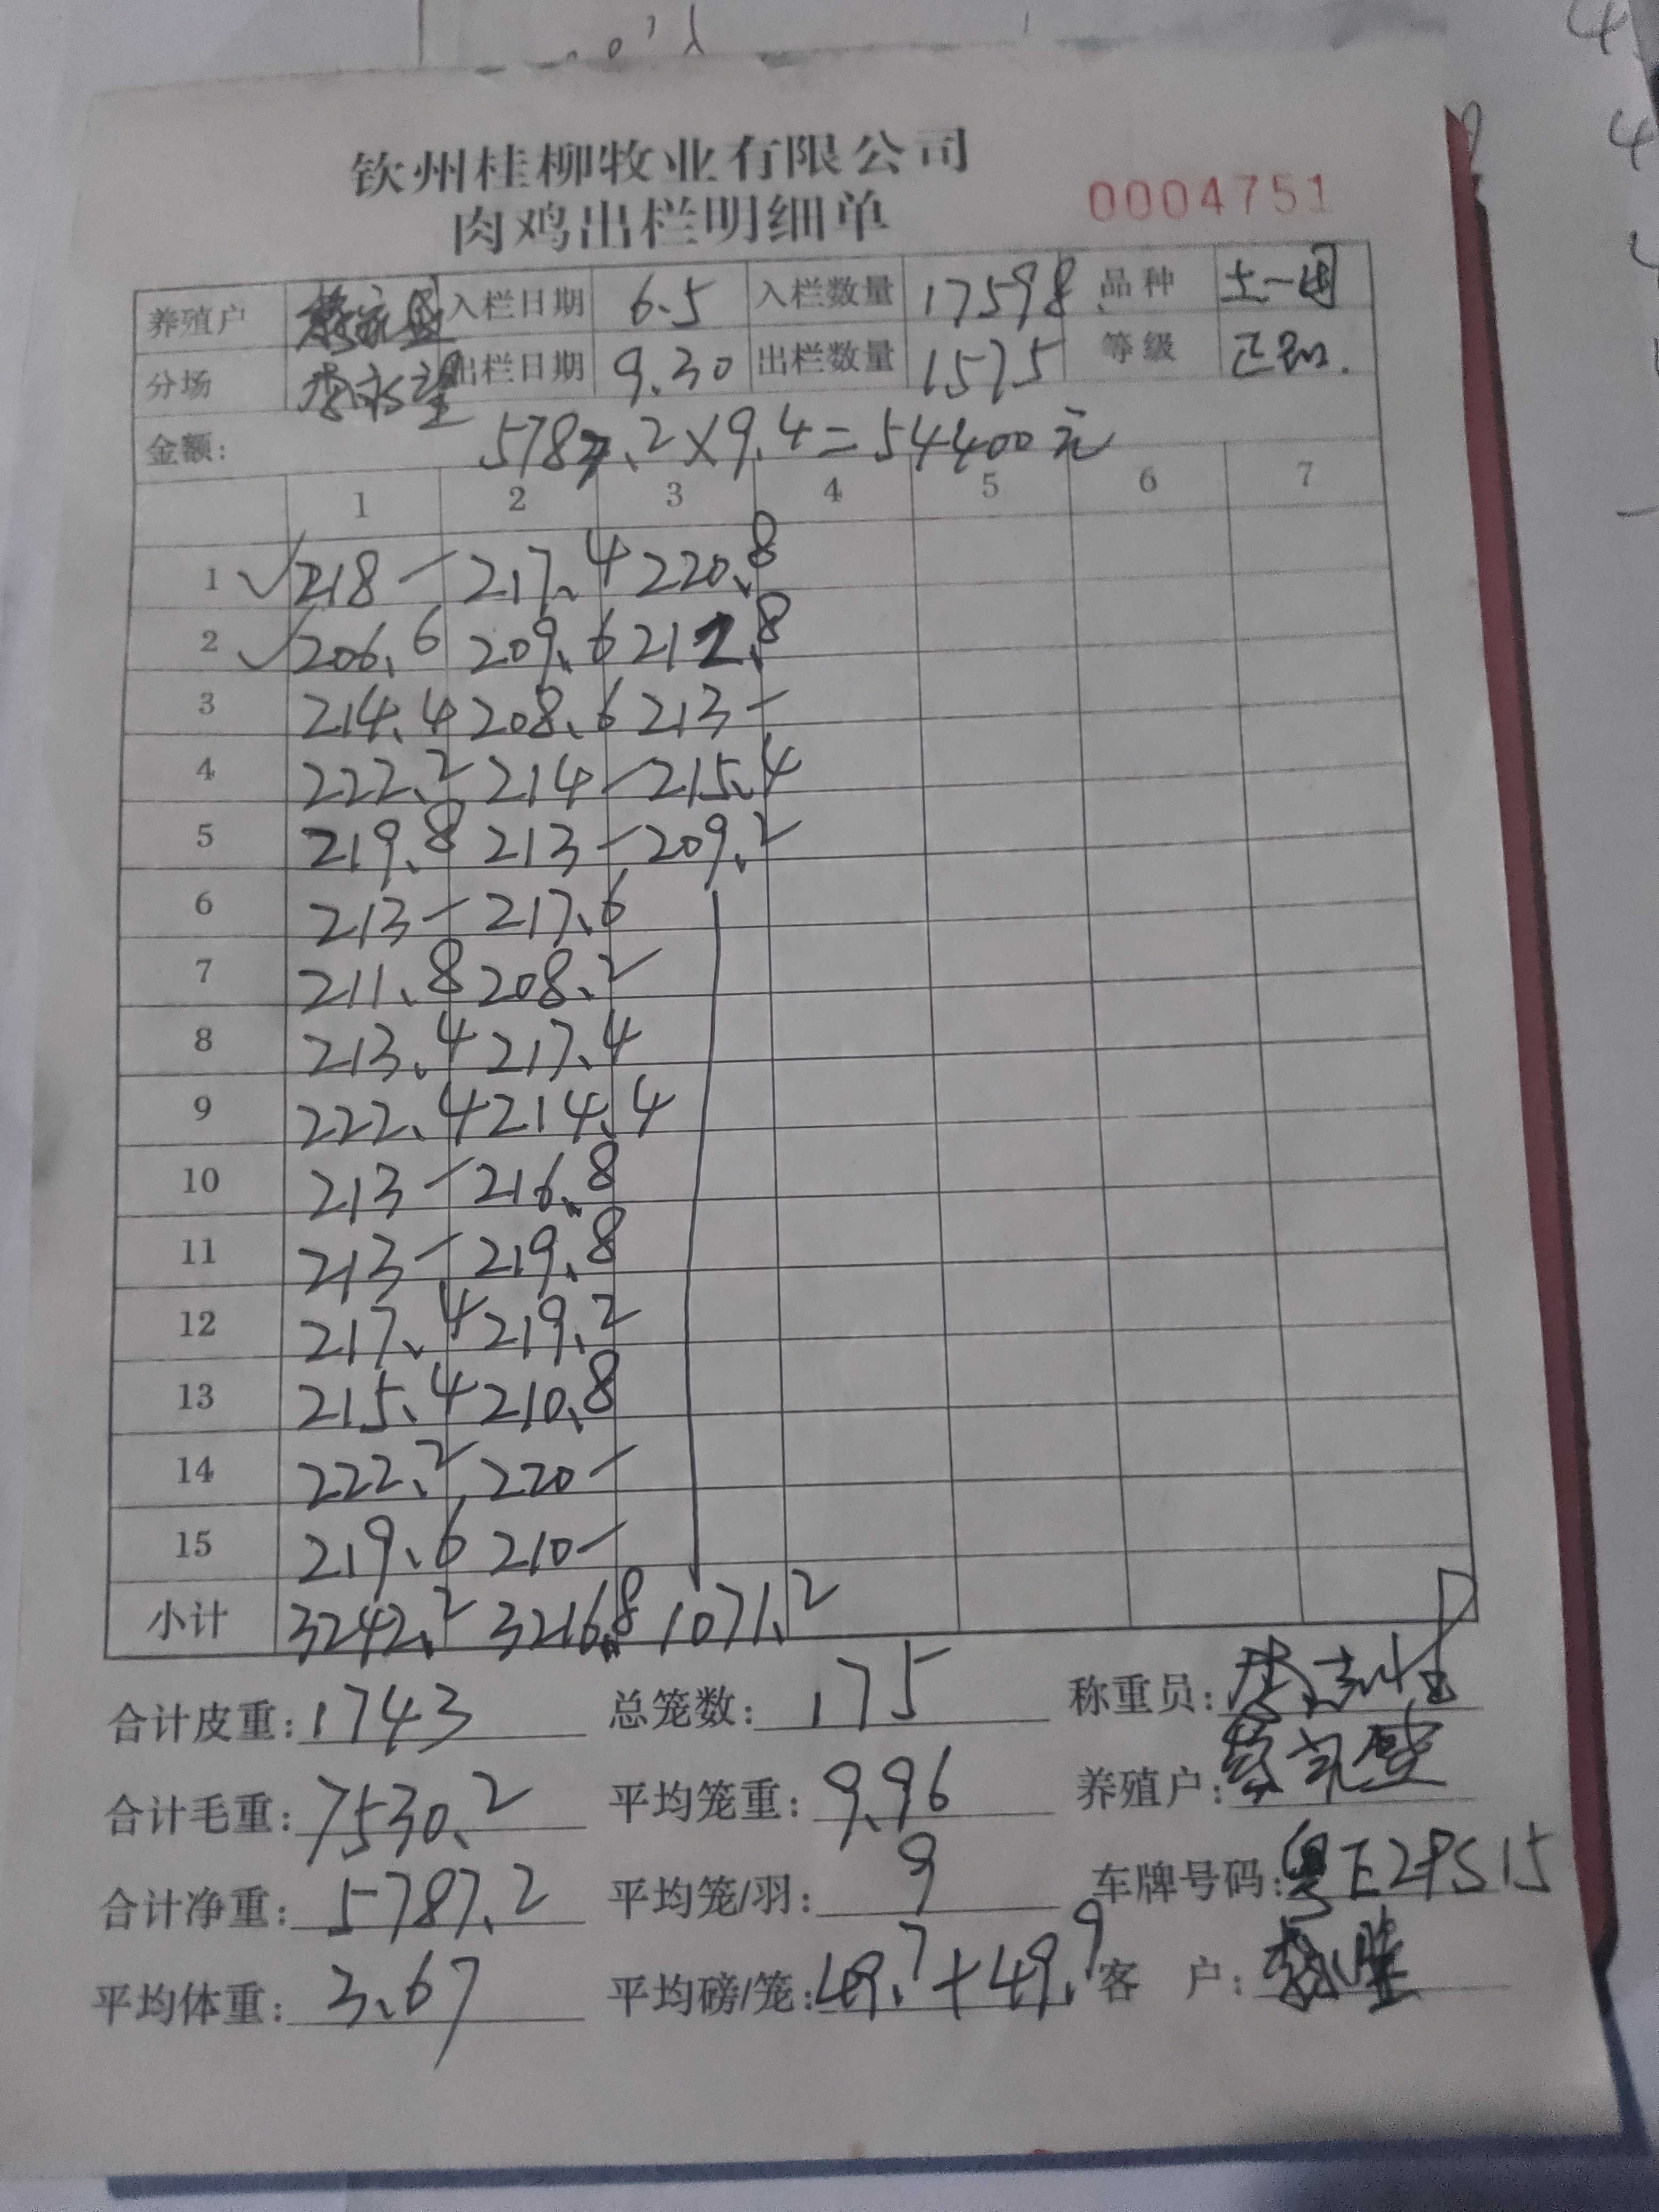 钦州桂柳牧业有限公司
肉鸡出栏明细单 0004751
养殖户 入栏日期 6.5 入栏数量 17598 品种 土一
分场 出栏日期 9.30 出栏数量 1575 等级 正品.
金额: 5787.2×9.4=54400元
1 2 3 4 5 6 7
1 ✓218— 217.4 220.8
2 ✓206.6 209.6 212.8
3 214.4 208.6 213—
4 222.2 214— 215.4
5 219.8 213— 209.2
6 213— 217.6
7 211.8 208.2
8 213.4 217.4
9 222.4 214.4
10 213— 216.8
11 213— 219.8
12 217.4 219.2
13 215.4 210.8
14 222.2 220—
15 219.6 210—
小计 3242.2 3216.8 1071.2
合计皮重: 1743 总笼数: 175 称重员:
合计毛重: 7530.2 平均笼重: 9.96 养殖户:
合计净重: 5787.2 平均笼/羽: 9 车牌号码:
平均体重: 3.67 平均磅/笼: 49.7+49.9 客 户: